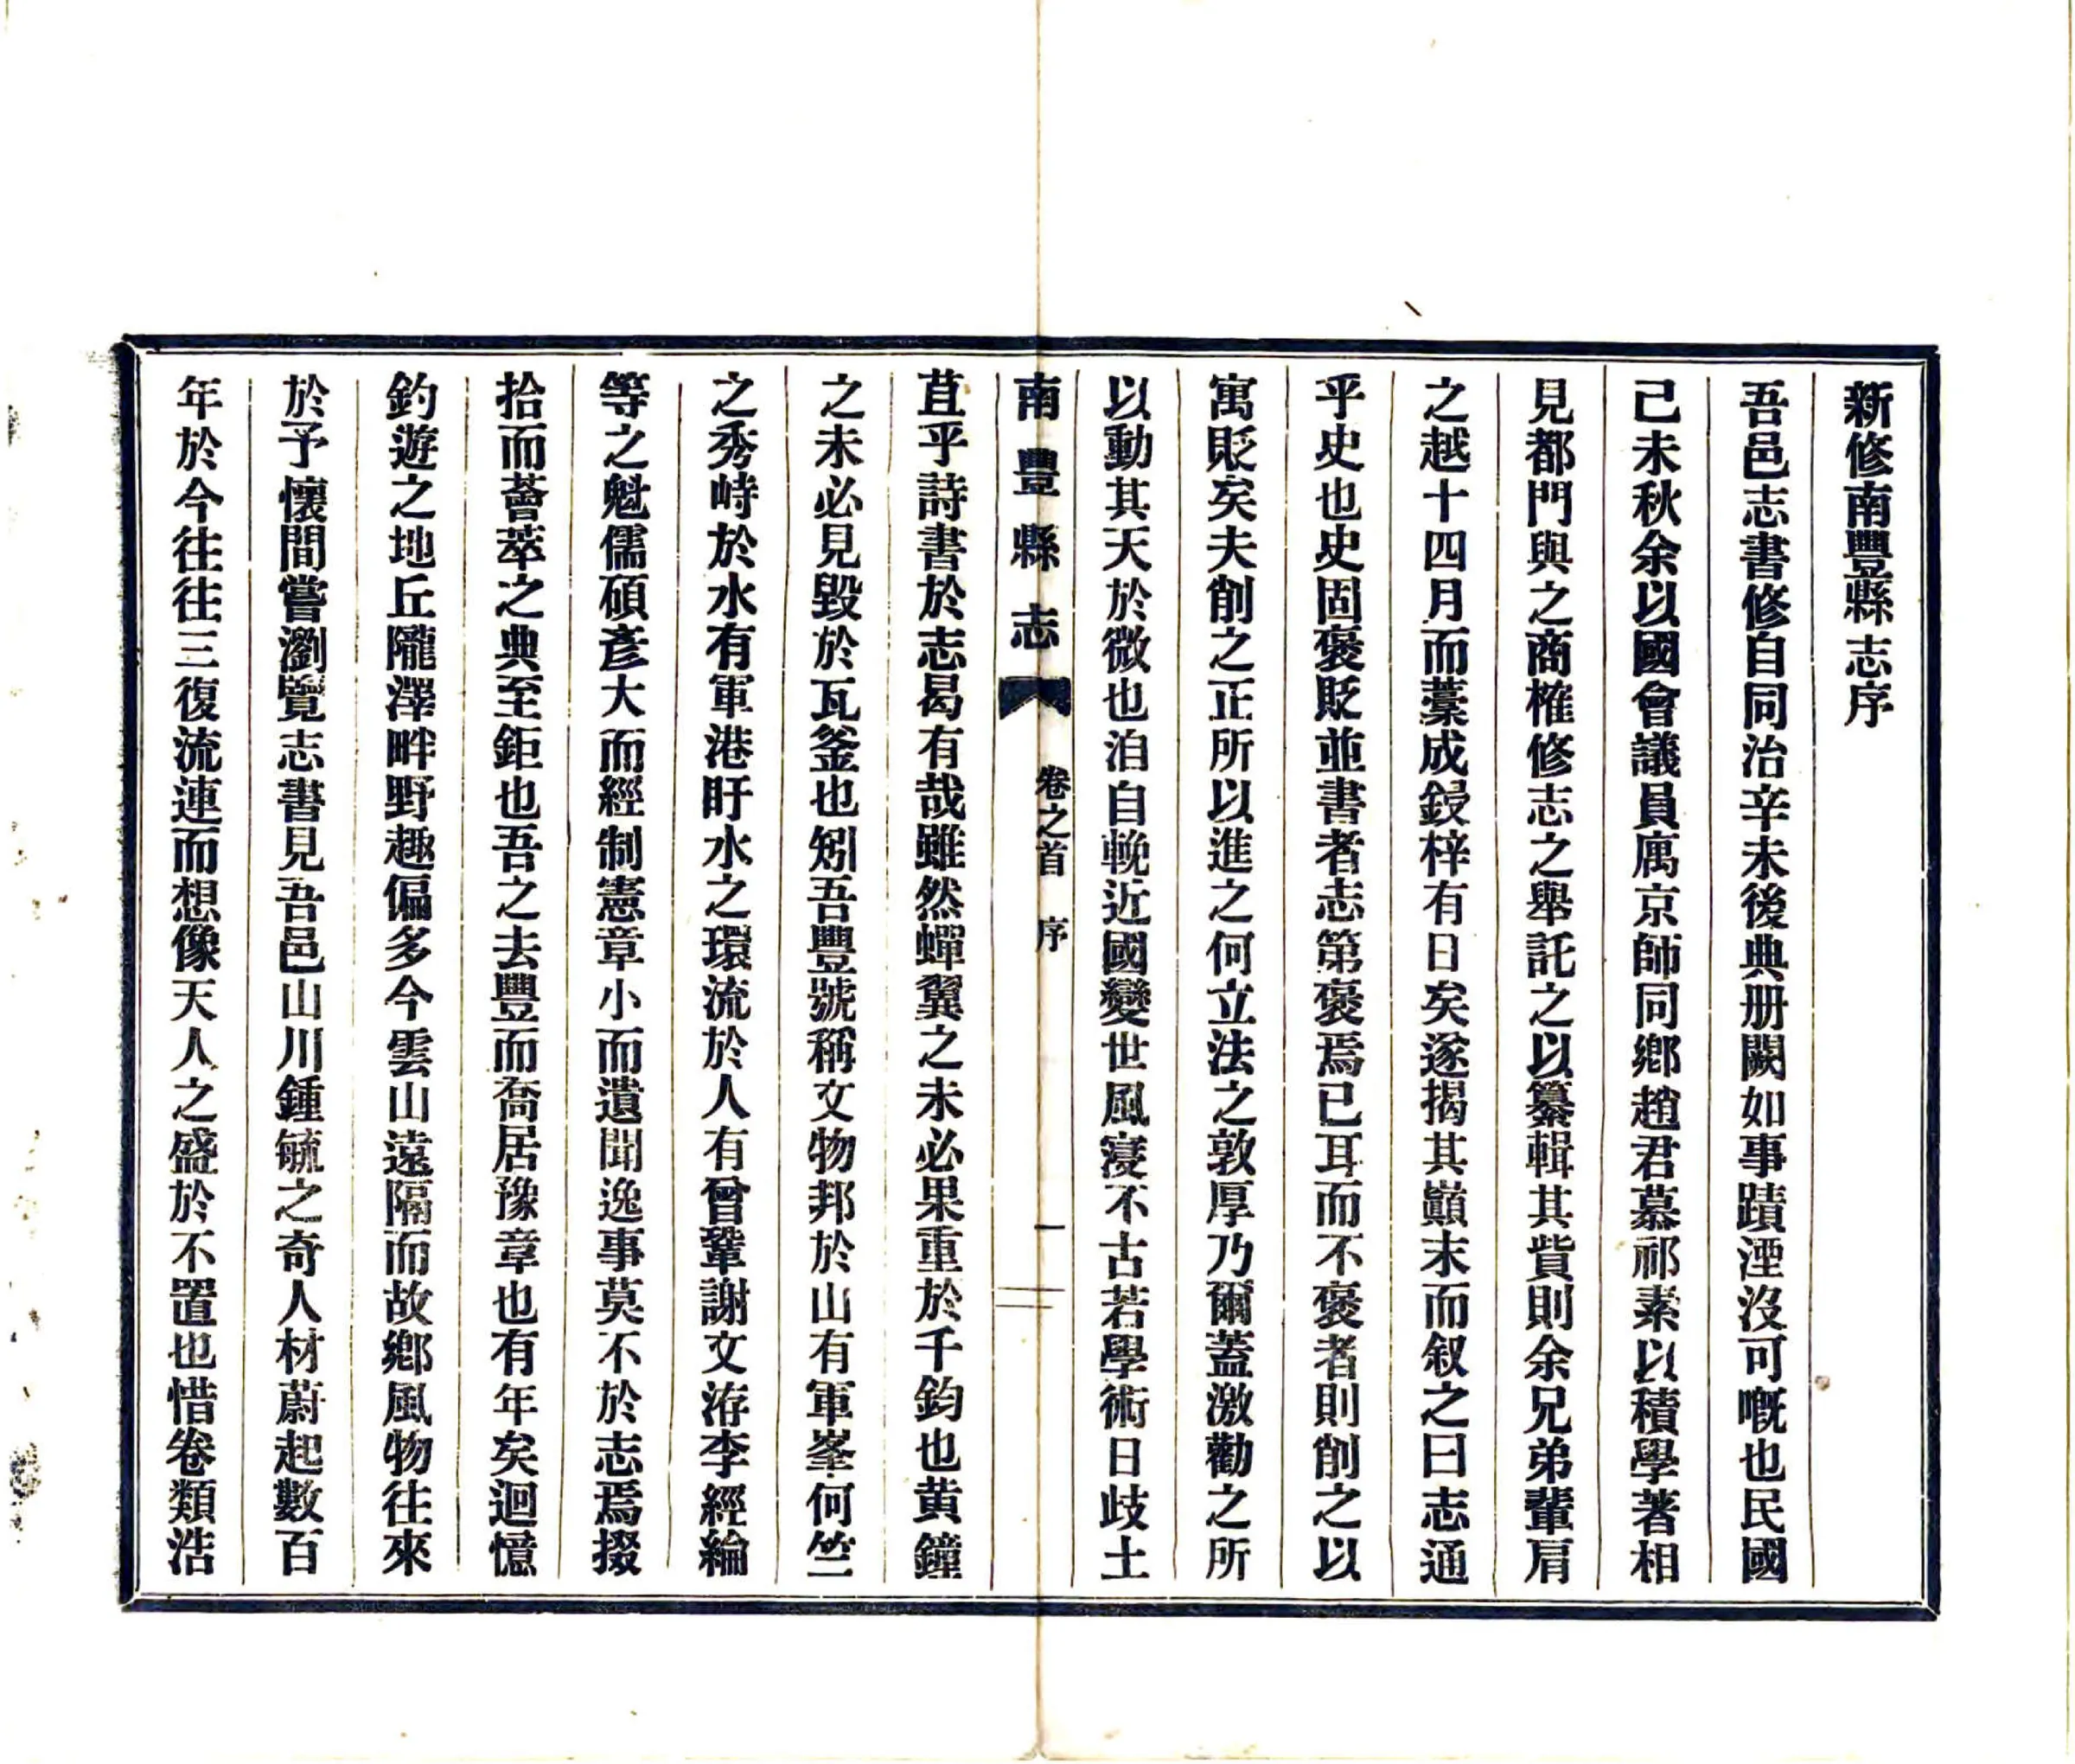 新修南豐縣志序
吾邑志書修自同治辛未後典册闕如事蹟湮沒可嘅也民國
己未秋余以國會議員寓京師同鄉趙君慕祁素以積學著相
見都門與之商榷修志之舉託之以纂輯其貲則余兄弟輩肩
之越十四月而藁成鋟梓有日矣遂揭其巔末而叙之曰志通
乎史也史固褒貶並書者志第褒焉已耳而不褒者則削之以
寓貶矣夫削之正所以進之何立法之敦厚乃爾蓋激勸之所
以動其天於微也洎自輓近國變世風寖不古若學術日歧土
南豐縣志
卷之首 序
一
苴乎詩書於志曷有哉雖然蟬翼之未必果重於千鈞也黄鐘
之未必見毀於瓦釜也矧吾豐號稱文物邦於山有軍峯何竺
之秀峙於水有軍港盱水之環流於人有曾鞏謝文洊李經綸
等之魁儒碩彥大而經制憲章小而遺聞逸事莫不於志焉掇
拾而薈萃之典至鉅也吾之去豐而喬居豫章也有年矣迴憶
釣遊之地丘隴澤畔野趣偏多今雲山遠隔而故鄉風物往來
於予懷間嘗瀏覽志書見吾邑山川鍾毓之奇人材蔚起數百
年於今往往三復流連而想像天人之盛於不置也惜卷類浩